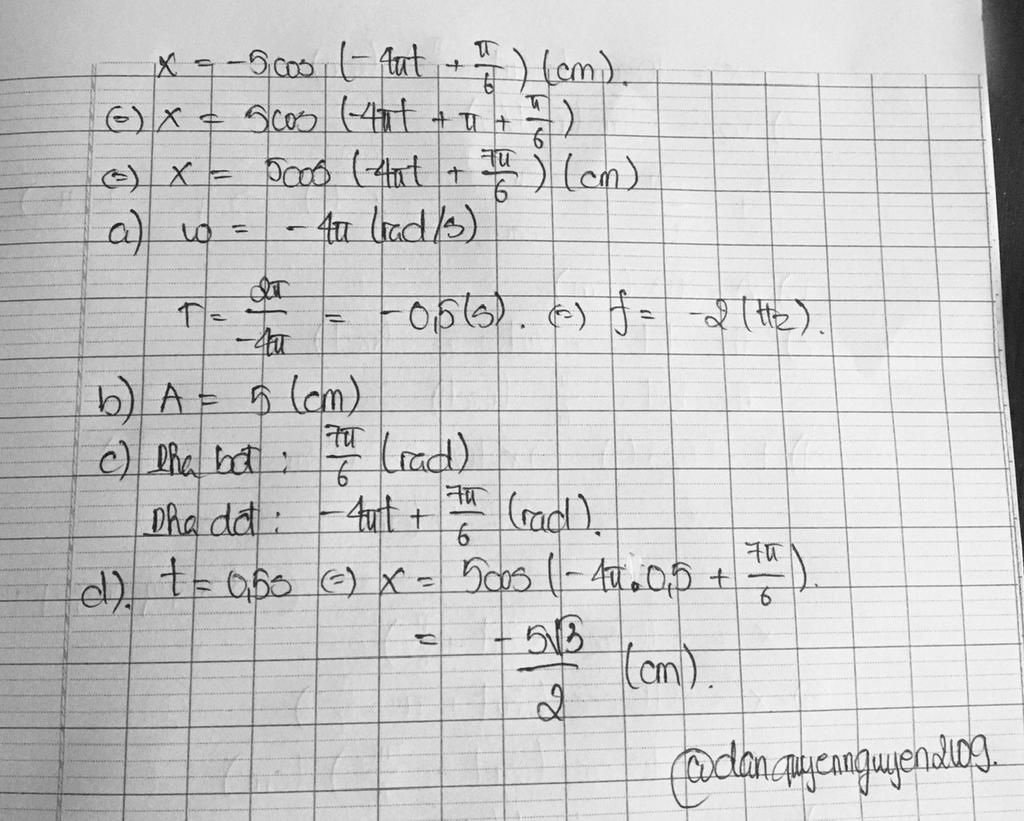 x = -5cos (-4πt + π/6) (cm).
(=) x = 5cos (-4πt + π + π/6)
(=) x = 5cos (-4πt + 7π/6) (cm)
a) ω = -4π (rad/s)
T = 2π/-4π = -0,5(s). (=) f = -2 (Hz).
b) A = 5 (cm)
c) Pha bđ : 7π/6 (rad)
Pha dđ : -4πt + 7π/6 (rad).
d). t = 0,5s (=) x = 5cos (-4π.0,5 + 7π/6).
= -5√3/2 (cm).
@danquyennguyen2109.